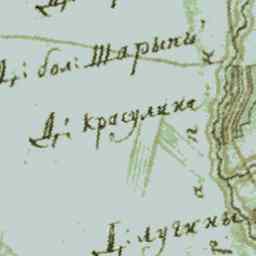 Д: бол: Шарыпи
Д: красулина
Д: лучины